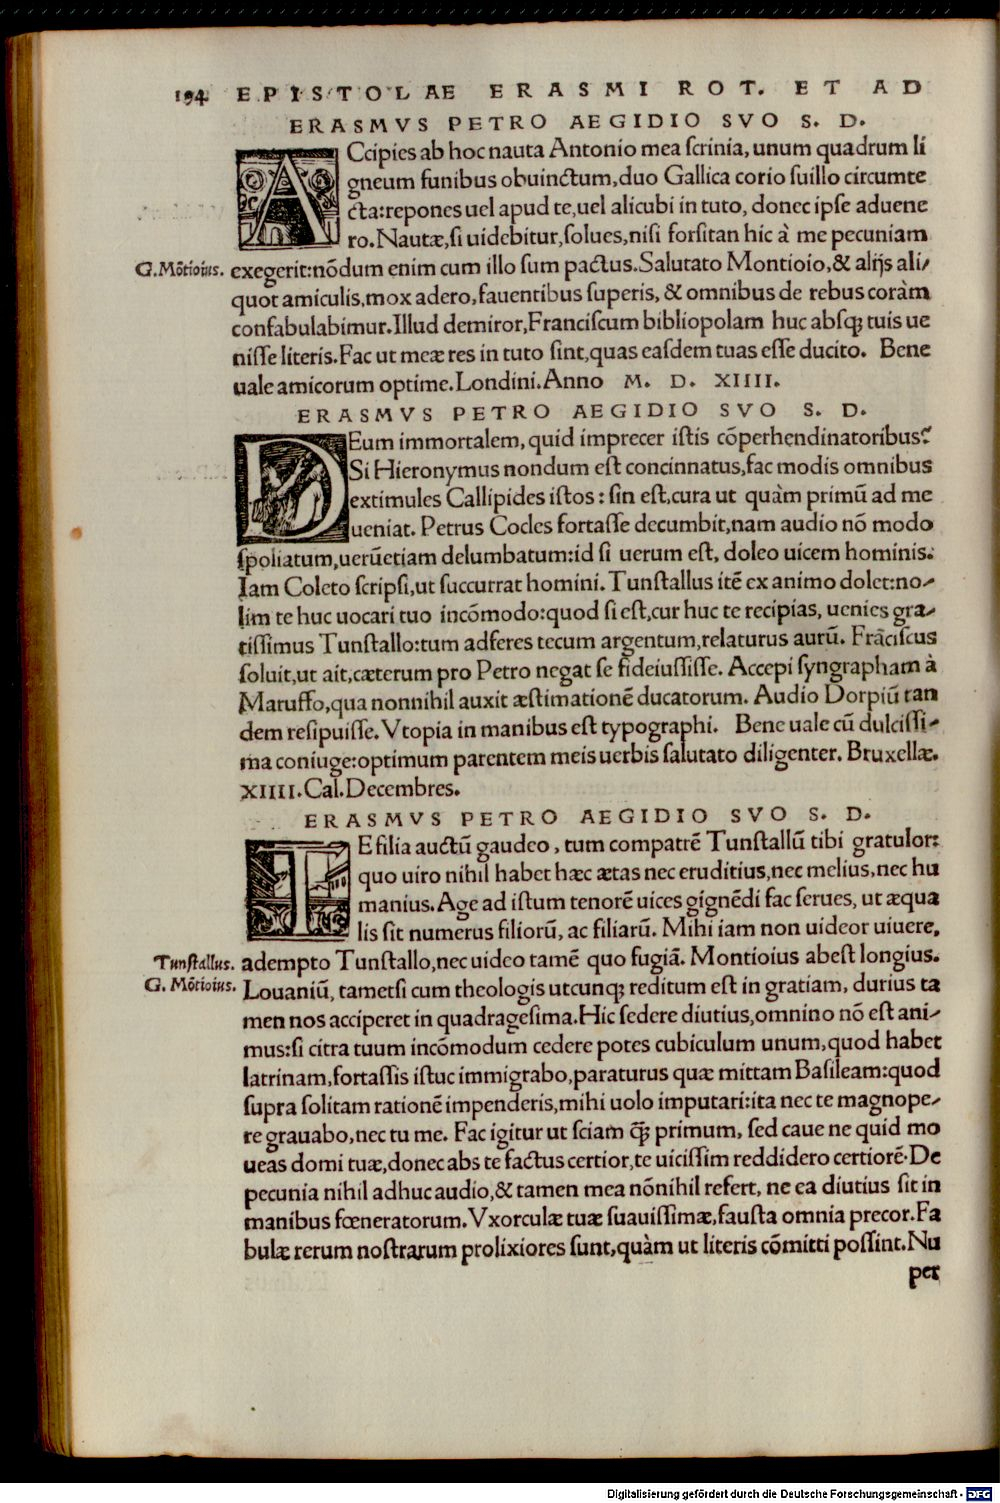 194 EPISTOLAE ERASMI ROT. ET AD
ERASMVS PETRO AEGIDIO SVO S. D.
ACcipies ab hoc nauta Antonio mea ſcrinia, unum quadrum li
gneum funibus obuinctum, duo Gallica corio ſuillo circumte
cta: repones uel apud te, uel alicubi in tuto, donec ipſe aduene
ro. Nautæ, ſi uidebitur, ſolues, niſi forſitan hic à me pecuniam
G. Mōtioius. exegerit: nōdum enim cum illo ſum pactus. Salutato Montioio, & alijs ali-
quot amiculis, mox adero, fauentibus ſuperis, & omnibus de rebus coràm
confabulabimur. Illud demiror, Franciſcum bibliopolam huc abſq; tuis ue
niſſe literis. Fac ut meæ res in tuto ſint, quas eaſdem tuas eſſe ducito. Bene
uale amicorum optime. Londini. Anno M. D. XIIII.
ERASMVS PETRO AEGIDIO SVO S. D.
DEum immortalem, quid imprecer iſtis cōperhendinatoribus?
Si Hieronymus nondum eſt concinnatus, fac modis omnibus
extimules Callipides iſtos: ſin eſt, cura ut quàm primū ad me
ueniat. Petrus Cocles fortaſſe decumbit, nam audio nō modo
ſpoliatum, uerūetiam delumbatum: id ſi uerum eſt, doleo uicem hominis.
Iam Coleto ſcripſi, ut ſuccurrat homini. Tunſtallus itē ex animo dolet: no-
lim te huc uocari tuo incōmodo: quod ſi eſt, cur huc te recipias, uenies gra-
tiſſimus Tunſtallo: tum adferes tecum argentum, relaturus aurū. Frāciſcus
ſoluit, ut ait, cæterum pro Petro negat ſe fideiuſſiſſe. Accepi ſyngrapham à
Maruffo, qua nonnihil auxit æſtimationē ducatorum. Audio Dorpiū tan
dem reſipuiſſe. Vtopia in manibus eſt typographi. Bene uale cū dulciſſi-
ma coniuge: optimum parentem meis uerbis ſalutato diligenter. Bruxellæ.
XIIII. Cal. Decembres.
ERASMVS PETRO AEGIDIO SVO S. D.
TE filia auctū gaudeo, tum compatrē Tunſtallū tibi gratulor:
quo uiro nihil habet hæc ætas nec eruditius, nec melius, nec hu
manius. Age ad iſtum tenorē uices gignēdi fac ſerues, ut æqua
lis ſit numerus filiorū, ac filiarū. Mihi iam non uideor uiuere,
Tunſtallus. adempto Tunſtallo, nec uideo tamē quo fugiā. Montioius abeſt longius.
G. Mōtioius. Louaniū, tametſi cum theologis utcunq; reditum eſt in gratiam, durius ta
men nos acciperet in quadrageſima. Hic ſedere diutius, omnino nō eſt ani-
mus: ſi citra tuum incōmodum cedere potes cubiculum unum, quod habet
latrinam, fortaſſis iſtuc immigrabo, paraturus quæ mittam Baſileam: quod
ſupra ſolitam rationē impenderis, mihi uolo imputari: ita nec te magnope-
re grauabo, nec tu me. Fac igitur ut ſciam q̄; primum, ſed caue ne quid mo
ueas domi tuæ, donec abs te factus certior, te uiciſſim reddidero certiorē. De
pecunia nihil adhuc audio, & tamen mea nōnihil refert, ne ea diutius ſit in
manibus fœneratorum. Vxorculæ tuæ ſuauiſſimæ, fauſta omnia precor. Fa
bulæ rerum noſtrarum prolixiores ſunt, quàm ut literis cōmitti poſſint. Nu
per
Digitalisierung gefördert durch die Deutsche Forschungsgemeinschaft - DFG